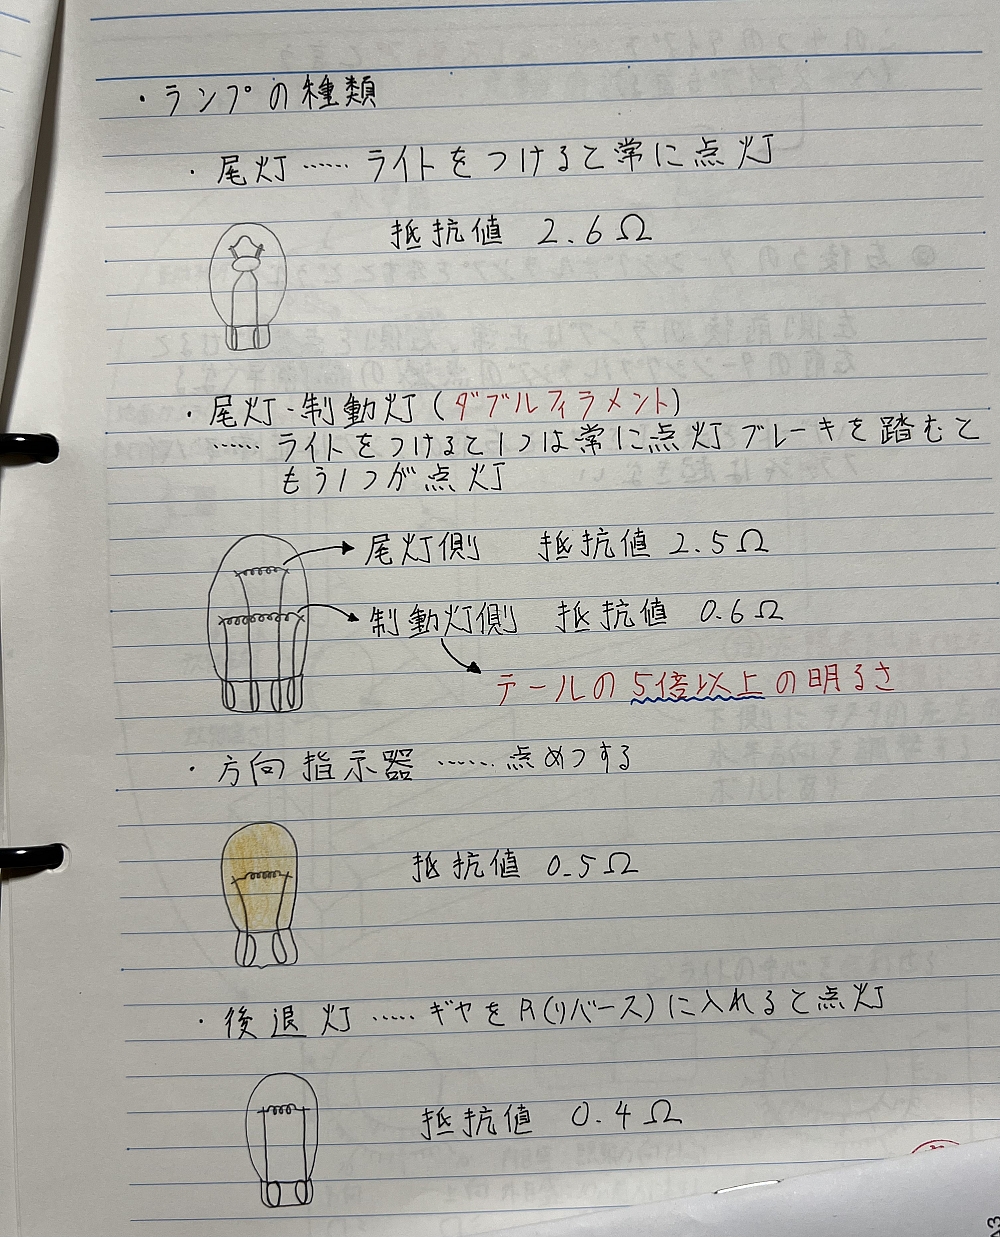 ・ランプの種類
・尾灯……ライトをつけると常に点灯
抵抗値 2.6Ω
・尾灯・制動灯(ダブルフィラメント)
……ライトをつけると1つは常に点灯ブレーキを踏むと
もう1つが点灯
尾灯側 抵抗値 2.5Ω
制動灯側 抵抗値 0.6Ω
テールの5倍以上の明るさ
・方向指示器……点めつする
抵抗値 0.5Ω
・後退灯……ギヤをR(リバース)に入れると点灯
抵抗値 0.4Ω